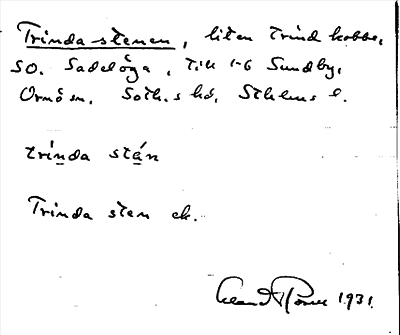 Trinda stenen, liten trind kobbe,
SO. Sadelöga, till 1-6 Sundby,
Ornö sn, Soth.s hd, Sthlms l.
trinda stán
Trinda sten ek.
1931